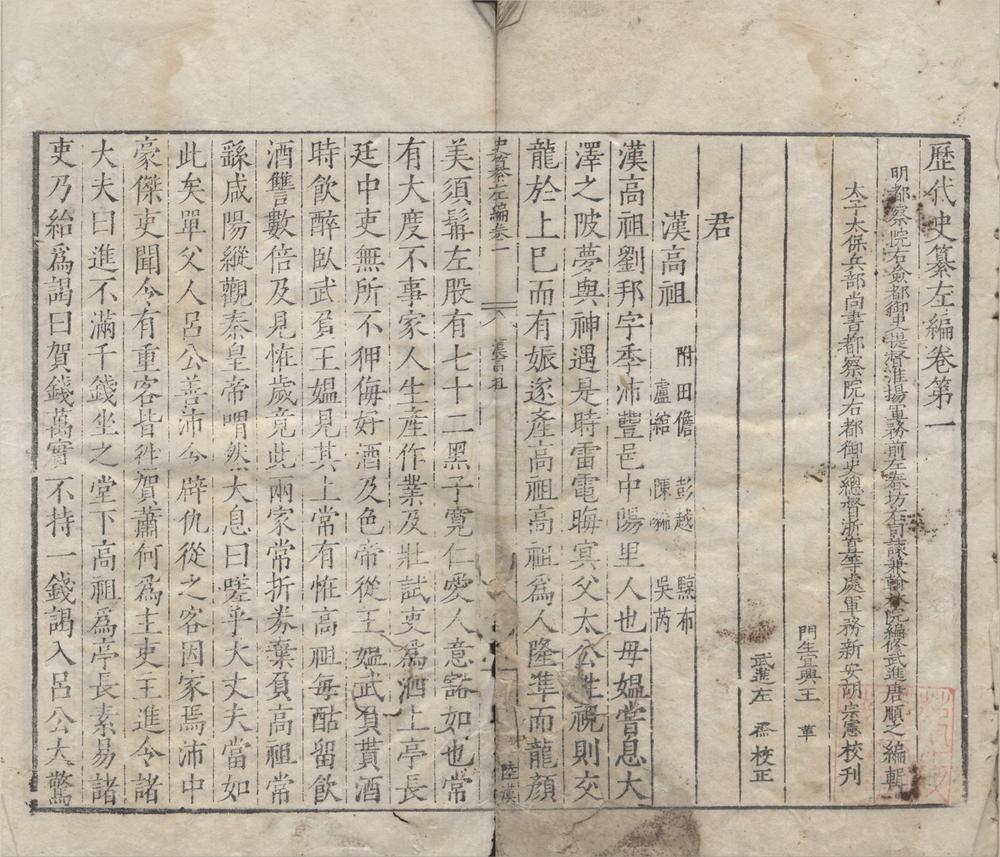 歷代史纂左編卷第一
明都察院右僉都御史提督淮揚軍務前左春坊右司諫兼翰林院編修武進唐順之編輯
太子太保兵部尚書都察院右都御史總督浙直等處軍務新安胡宗憲校刊
門生宜興王革
武進左烝校正
君
漢高祖 附田儋 彭越 黥布
盧綰 陳豨 吳芮
漢高祖劉邦字季沛豐邑中陽里人也母媼嘗息大
澤之陂夢與神遇是時雷電晦冥父太公往視則交
龍於上已而有娠遂產高祖高祖為人隆準而龍顏
史纂左編卷一
漢高祖
陸漢
美須髯左股有七十二黑子寬仁愛人意豁如也常
有大度不事家人生產作業及壯試吏為泗上亭長
廷中吏無所不狎侮好酒及色帝從王媼武負貰酒
時飲醉臥武負王媼見其上常有怪高祖每酤留飲
酒讐數倍及見怪歲竟此兩家常折券棄負高祖常
繇咸陽縱觀秦皇帝喟然大息曰嗟乎大丈夫當如
此矣單父人呂公善沛令辟仇從之客因家焉沛中
豪傑吏聞令有重客皆往賀蕭何為主吏主進令諸
大夫曰進不滿千錢坐之堂下高祖為亭長素易諸
吏乃紿為謁曰賀錢萬實不持一錢謁入呂公大驚